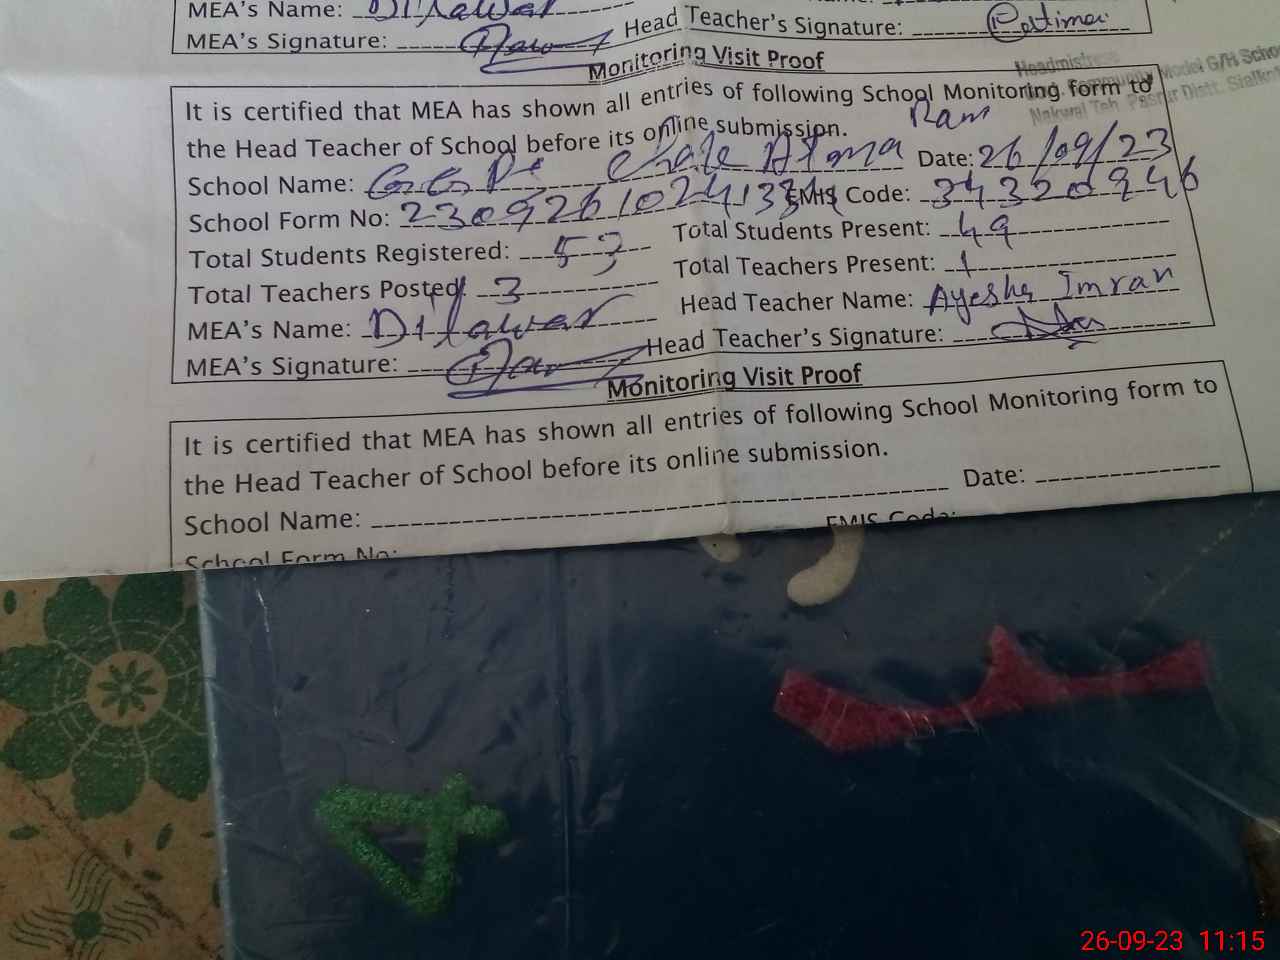 MEA's Name: Dilawar
MEA's Signature: Head Teacher's Signature: Fatima
Headmistress
Community Model G/H School
Nakwal Teh. Pasrur Distt. Sialkot
Monitoring Visit Proof
It is certified that MEA has shown all entries of following School Monitoring form to
the Head Teacher of School before its online submission.
School Name: Chak Atma Ram Date: 26/09/23
School Form No: EMIS Code: 34320946
Total Students Registered: 53 Total Students Present: 49
Total Teachers Posted: 3 Total Teachers Present: 1
MEA's Name: Dilawar Head Teacher Name: Ayesha Imran
MEA's Signature: Head Teacher's Signature:
Monitoring Visit Proof
It is certified that MEA has shown all entries of following School Monitoring form to
the Head Teacher of School before its online submission.
School Name: Date:
School Form No: EMIS Code:
26-09-23 11:15